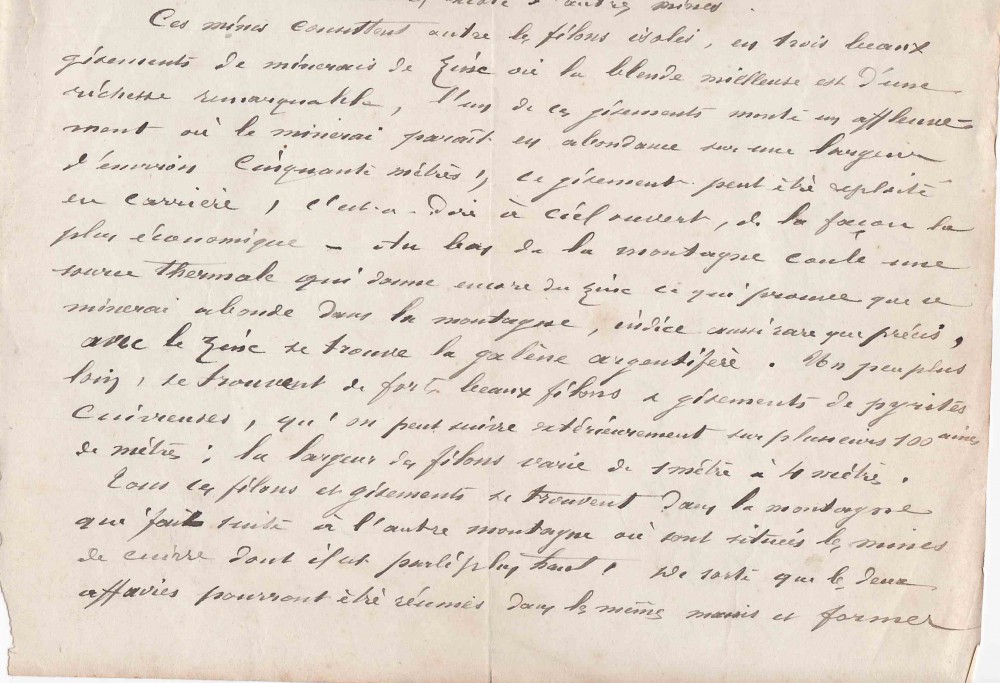 encore d'autres mines.
Ces mines consistent outre les filons isolés, en trois beaux
gisements de minerais de zinc où la blende mielleuse est d'une
richesse remarquable, l'un de ces gisements monte en affleure-
ment où le minerai paraît en abondance sur une largeur
d'environ cinquante mètres, ce gisement peut être exploité
en carrière, c'est-a-dire à ciel ouvert, de la façon la
plus économique - Au bas de la montagne coule une
source thermale qui donne encore du zinc ce qui prouve que ce
minerai abonde dans la montagne, indice aussi rare que précis,
avec le zinc se trouve la galène argentifère. Un peu plus
loin, se trouvent de forts beaux filons & gisements de pyrites
cuivreuses, qu'on peut suivre extérieurement sur plusieurs 100aines
de mètres; la largeur des filons varie de 1 mètre à 4 mètres.
Tous ces filons et gisements se trouvent dans la montagne
qui fait suite à l'autre montagne où sont situées les mines
de cuivre dont il est parlé plus haut! De sorte que les deux
affaires pourront être réunies dans les mêmes mains et former